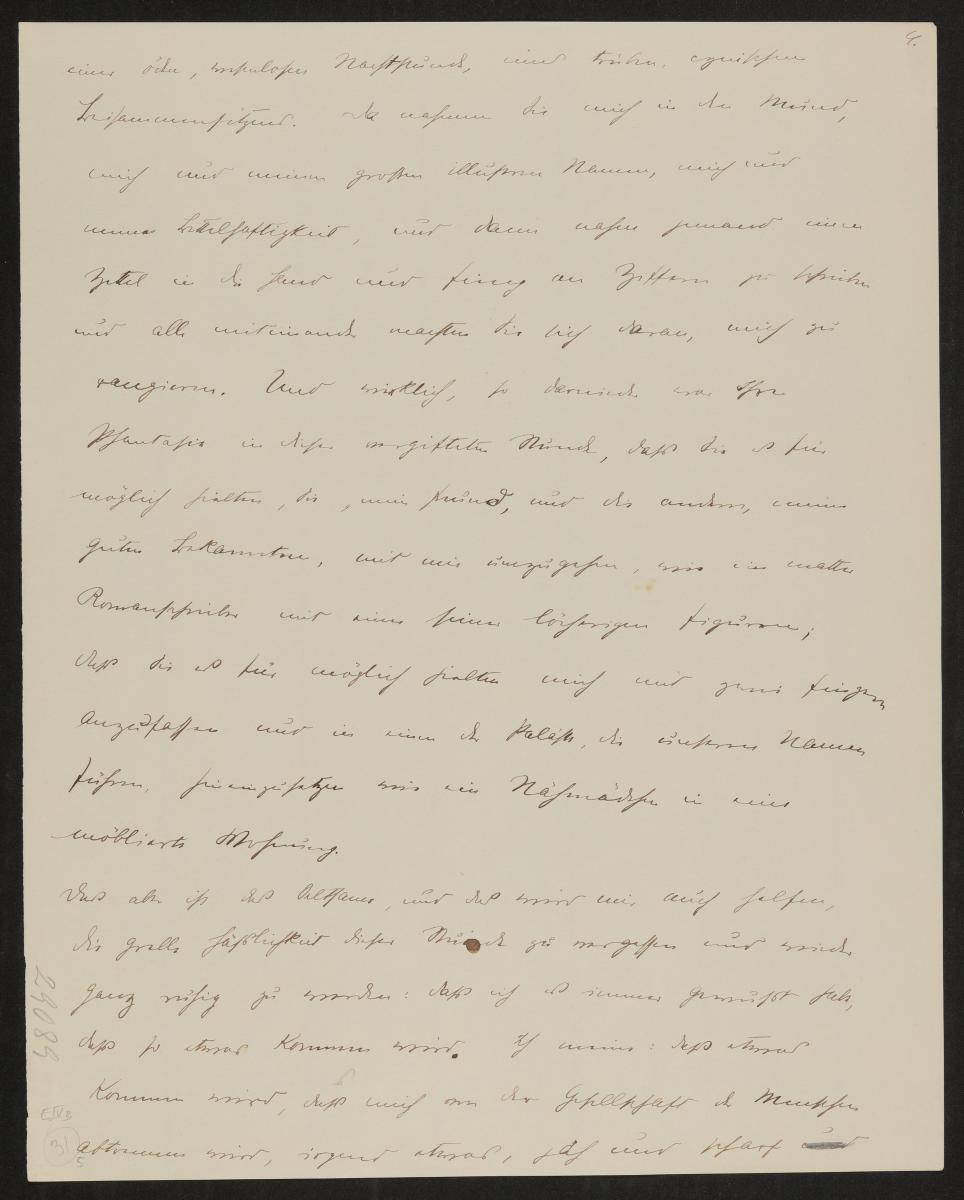 4.
einer öden, wesenlosen Nachtstunde, eines trüben, cynischen
Beisammensitzens. Da nahmen Sie mich in den Mund,
mich und meinen großen illustren Namen, mich und
meine Bettelhaftigkeit, und dann nahm jemand einen
Zettel in die Hand und fing an Ziffern zu schreiben
und alle miteinander machten Sie sich daran, mich zu
rangieren. Und wirklich, so darnieder war Ihre
Phantasie in dieser vergifteten Stunde, daß Sie es für
möglich hielten, Sie, mein Freund, und die andern, meine
guten Bekannten, mit mir umzugehen, wie ein matter
Romanschreiber mit einer seiner löcherigen Figuren;
daß Sie es für möglich hielten mich mit zwei Fingern
anzufassen und in einen der Paläste, die unseren Namen
führen, hineinzusetzen wie ein Nähmädchen in eine
möblierte Wohnung.
Das aber ist das Seltsame, und das wird mir auch helfen,
die grelle Häßlichkeit dieser Stunde zu vergessen und wieder
ganz ruhig zu werden: daß ich es immer gewußt habe,
daß so etwas kommen wird. Ich meine: daß etwas
kommen wird, das mich von der Gesellschaft der Menschen
abtrennen wird, irgend etwas, jäh und scharf und
29089
E IV B
31
5